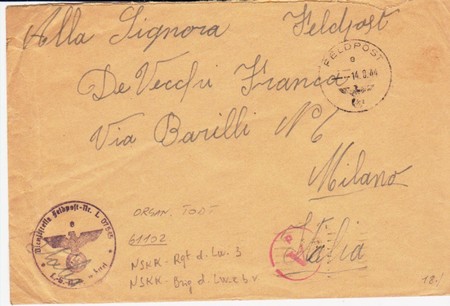 Alla Signora Feldpost
De Vecchi Franca
Via Barilli N 6
Milano
Italia
FELDPOST
14.8.44
Dienststelle Feldpost-Nr. L
ORGAN. TODT
61102
NSKK - Rgt d. Lw. 3
NSKK - Brig d. Luftw
18.-